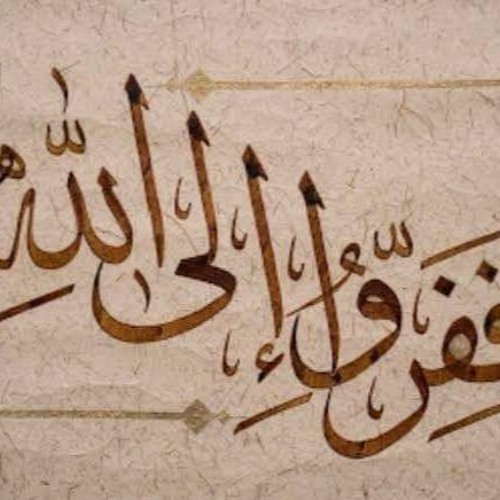 فَفِرُّوا إِلَى اللَّهِ